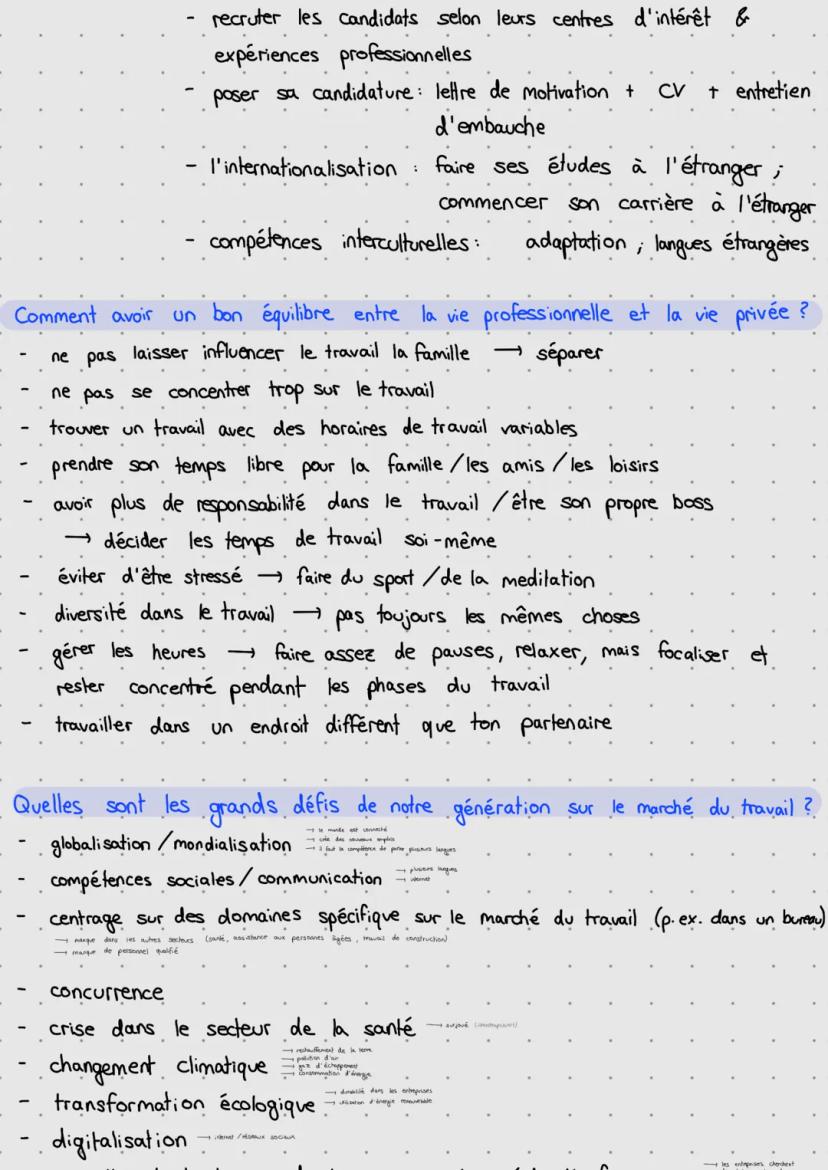 - recruter les candidats selon leurs centres d'intérêt &
expériences professionnelles
- poser sa candidature : lettre de motivation + CV + entretien
d'embauche
- l'internationalisation : faire ses études à l'étranger ;
commencer son carrière à l'étranger
- compétences interculturelles : adaptation ; langues étrangères
Comment avoir un bon équilibre entre la vie professionnelle et la vie privée ?
- ne pas laisser influencer le travail la famille → séparer
- ne pas se concentrer trop sur le travail
- trouver un travail avec des horaires de travail variables
- prendre son temps libre pour la famille / les amis / les loisirs
- avoir plus de responsabilité dans le travail / être son propre boss
→ décider les temps de travail soi-même
- éviter d'être stressé → faire du sport / de la meditation
- diversité dans le travail → pas toujours les mêmes choses
- gérer les heures → faire assez de pauses, relaxer, mais focaliser et
rester concentré pendant les phases du travail
- travailler dans un endroit différent que ton partenaire
Quelles sont les grands défis de notre génération sur le marché du travail ?
- globalisation / mondialisation
→ le monde est connecté
→ crée des nouveaux emplois
→ il faut la compétence de parler plusieurs langues
- compétences sociales / communication
→ plusieurs langues
→ internet
- centrage sur des domaines spécifique sur le marché du travail (p. ex. dans un bureau)
→ manque dans les autres secteurs (santé, assistance aux personnes âgées, travail de construction)
→ manque de personnel qualifié
- concurrence
- crise dans le secteur de la santé →
- changement climatique
→ réchauffement de la terre
→ pollution d'air
→ gaz d'échappement
→ consommation d'énergie
- transformation écologique
→ durabilité dans les entreprises
→ utilisation d'énergie renouvelable
- digitalisation → internet / réseaux sociaux
→ les entreprises cherchent